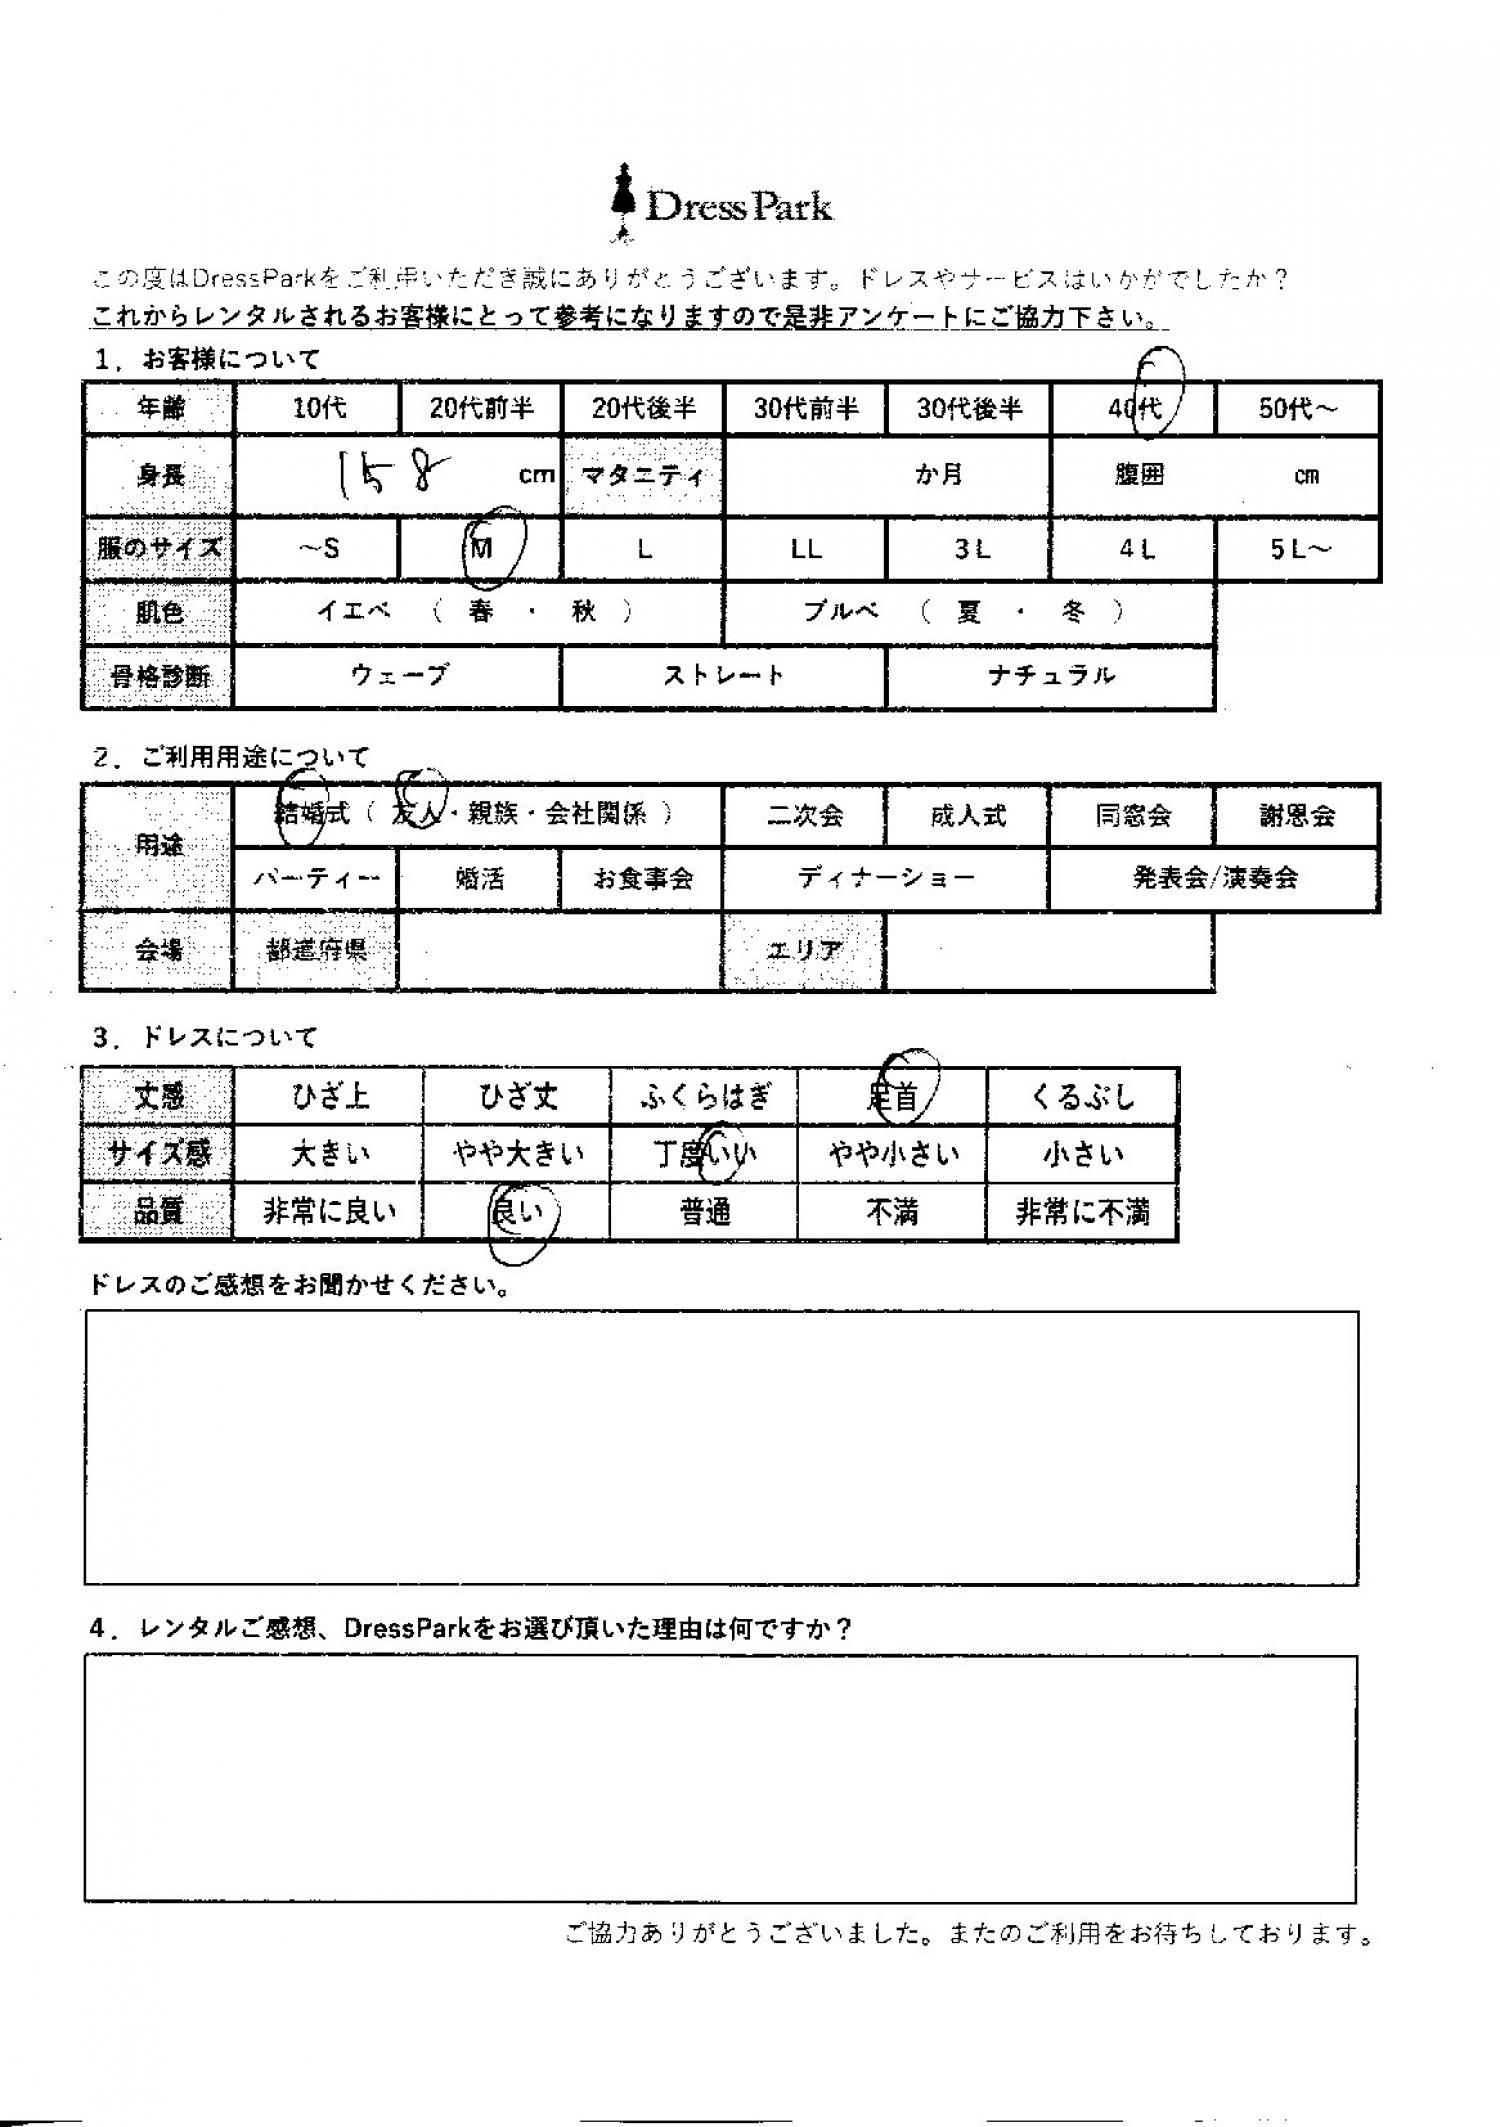 DressPark
この度はDressParkをご利用いただき誠にありがとうございます。ドレスやサービスはいかがでしたか？
これからレンタルされるお客様にとって参考になりますので是非アンケートにご協力下さい。
1．お客様について
年齢 10代 20代前半 20代後半 30代前半 30代後半 40代 50代～
身長 158 cm マタニティ か月 腹囲 cm
服のサイズ ～S M L LL 3L 4L 5L～
肌色 イエベ （ 春 ・ 秋 ） ブルベ （ 夏 ・ 冬 ）
骨格診断 ウェーブ ストレート ナチュラル
2．ご利用用途について
用途 結婚式（ 友人・親族・会社関係 ） 二次会 成人式 同窓会 謝恩会
パーティー 婚活 お食事会 ディナーショー 発表会/演奏会
会場 都道府県 エリア
3．ドレスについて
丈感 ひざ上 ひざ丈 ふくらはぎ 足首 くるぶし
サイズ感 大きい やや大きい 丁度いい やや小さい 小さい
品質 非常に良い 良い 普通 不満 非常に不満
ドレスのご感想をお聞かせください。
4．レンタルご感想、DressParkをお選び頂いた理由は何ですか？
ご協力ありがとうございました。またのご利用をお待ちしております。